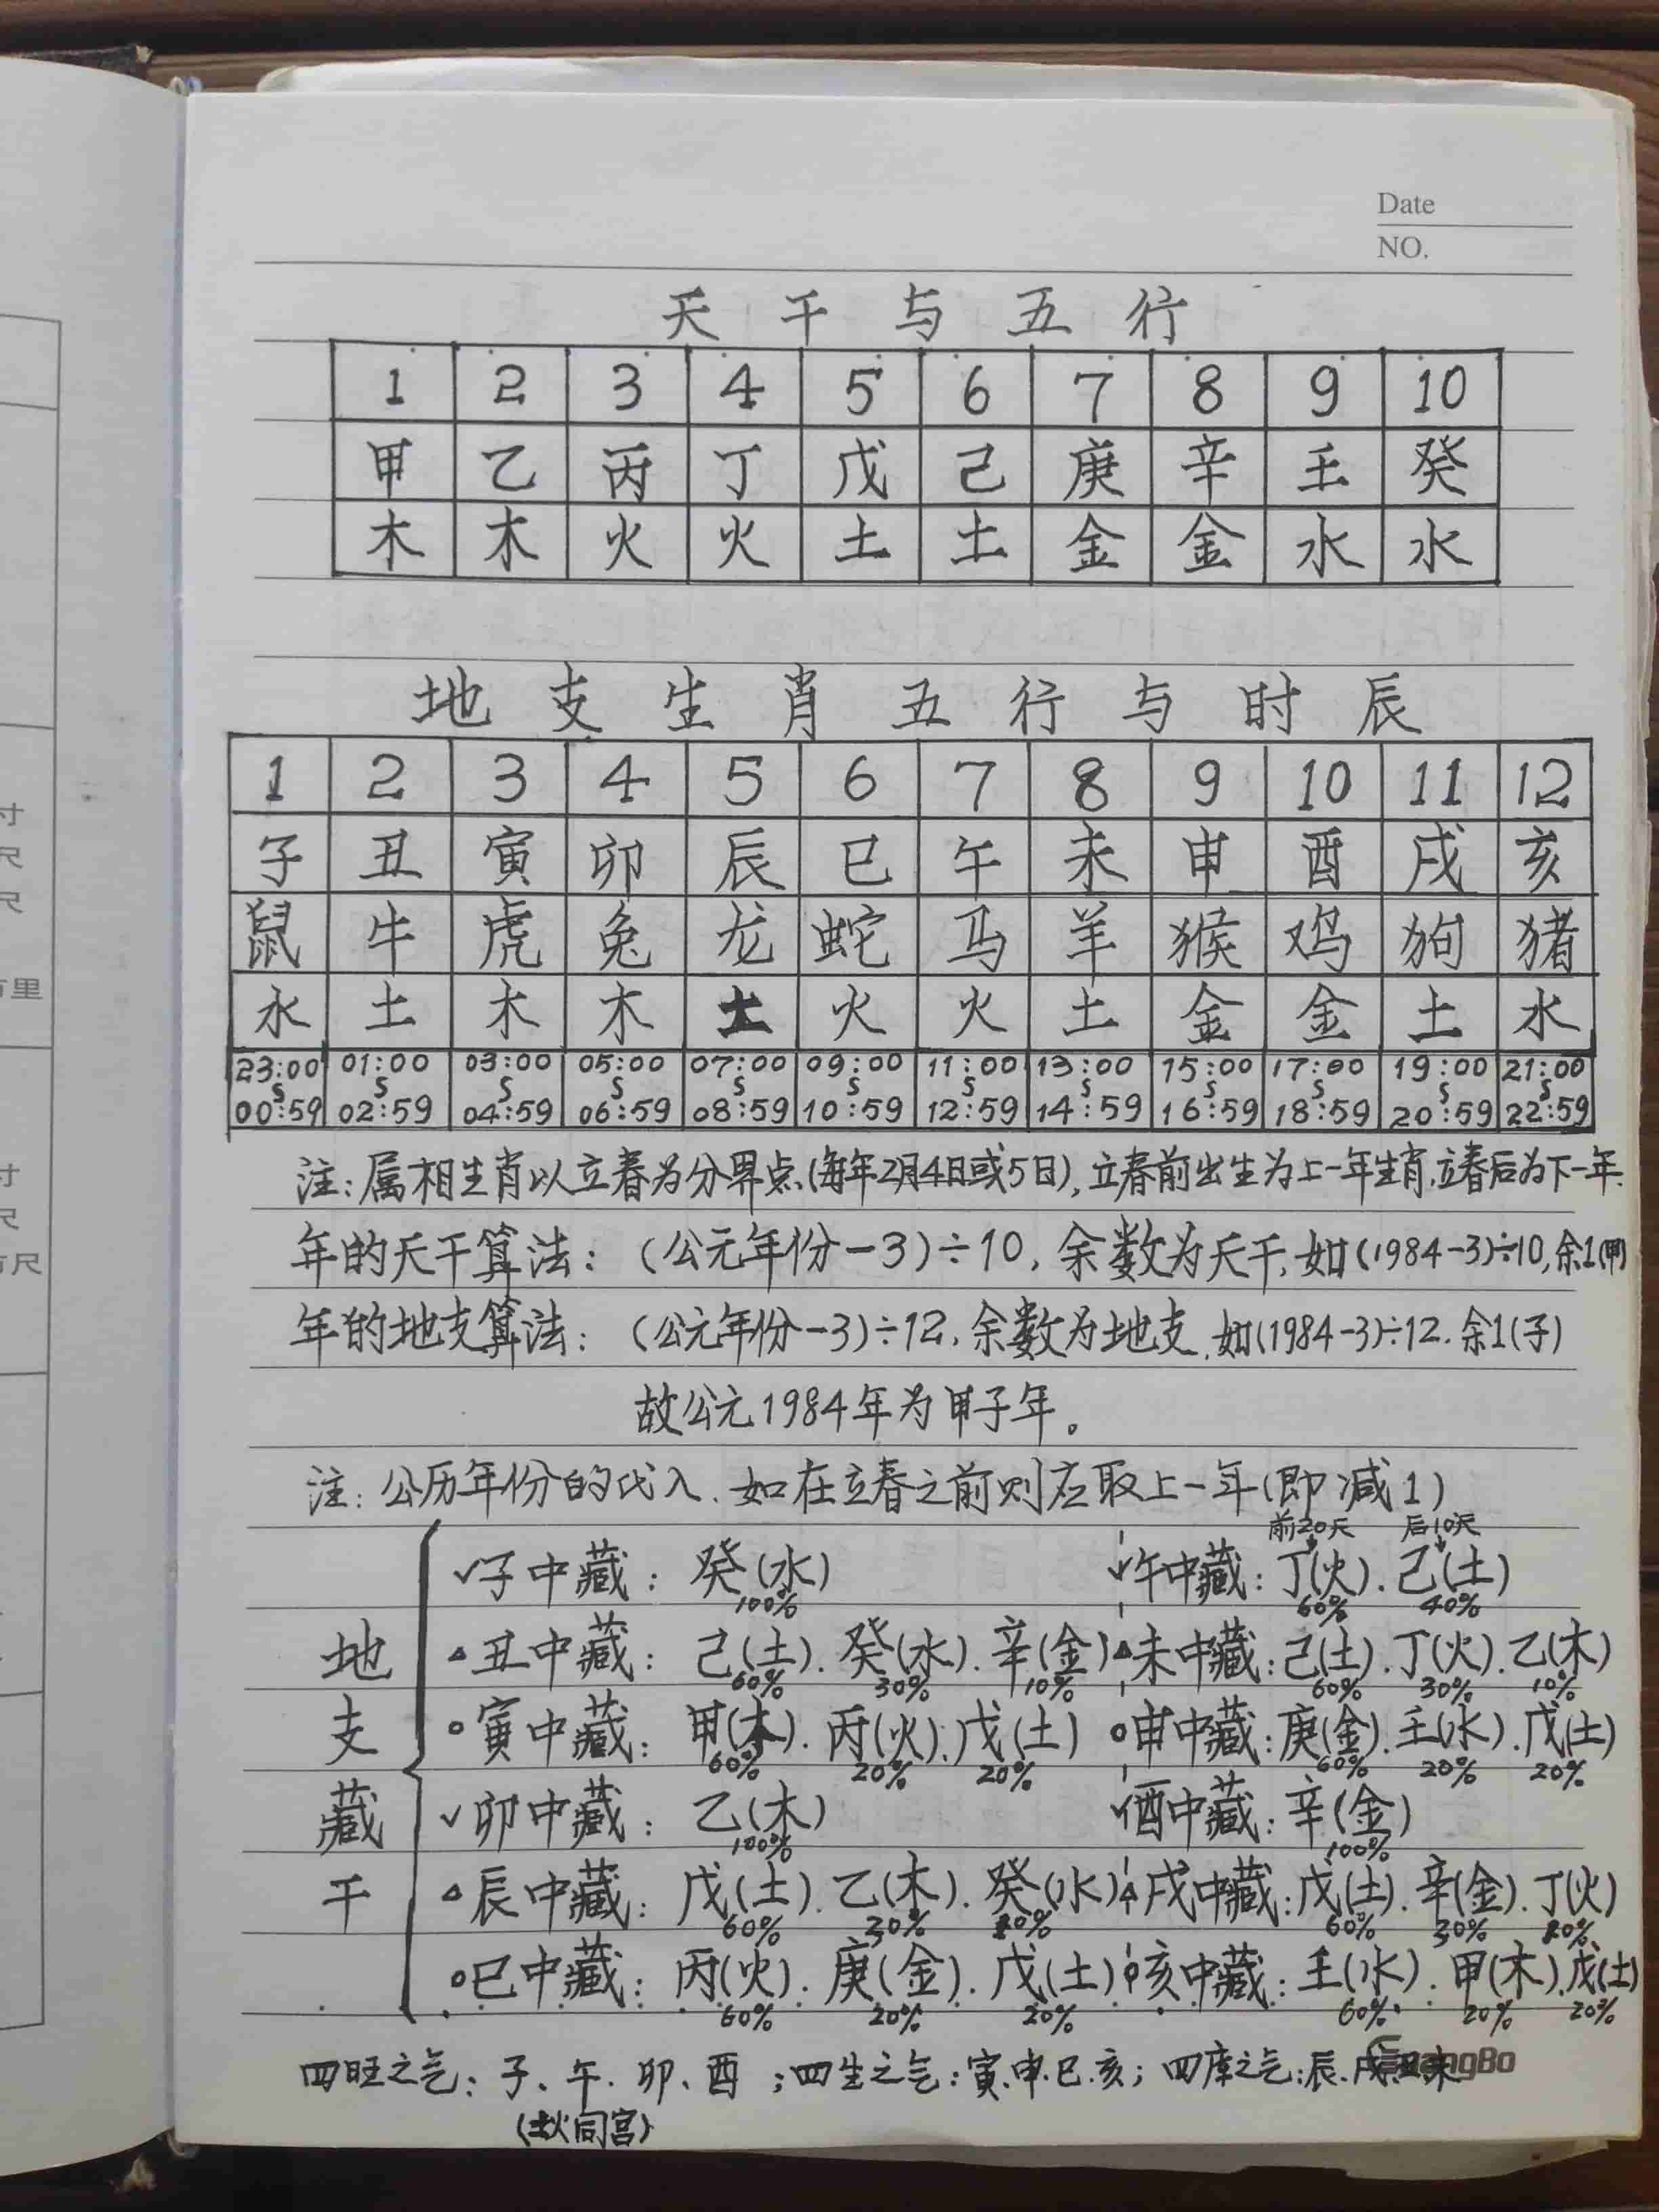 Date
NO.
天干与五行
1 2 3 4 5 6 7 8 9 10
甲 乙 丙 丁 戊 己 庚 辛 壬 癸
木 木 火 火 土 土 金 金 水 水
地支生肖五行与时辰
1 2 3 4 5 6 7 8 9 10 11 12
子 丑 寅 卯 辰 巳 午 未 申 酉 戌 亥
鼠 牛 虎 兔 龙 蛇 马 羊 猴 鸡 狗 猪
水 土 木 木 土 火 火 土 金 金 土 水
23:00 01:00 03:00 05:00 07:00 09:00 11:00 13:00 15:00 17:00 19:00 21:00
00:59 02:59 04:59 06:59 08:59 10:59 12:59 14:59 16:59 18:59 20:59 22:59
注:属相生肖以立春为分界点(每年2月4日或5日),立春前出生为上一年生肖,立春后为下一年.
年的天干算法:(公元年份-3)÷10,余数为天干,如(1984-3)÷10,余1(甲)
年的地支算法:(公元年份-3)÷12.余数为地支,如(1984-3)÷12.余1(子)
故公元1984年为甲子年。
注:公历年份的代入.如在立春之前则应取上一年(即减1)
前20天 后10天
✓子中藏:癸(水) ✓午中藏:丁(火).己(土)
100% 60% 40%
地 △丑中藏:己(土).癸(水).辛(金) △未中藏:己(土).丁(火).乙(木)
60% 30% 10% 60% 30% 10%
支 ○寅中藏:甲(木).丙(火).戊(土) ○申中藏:庚(金).壬(水).戊(土)
60% 20% 20% 60% 20% 20%
藏 ✓卯中藏:乙(木) ✓酉中藏:辛(金)
100% 100%
干 △辰中藏:戊(土).乙(木).癸(水) △戌中藏:戊(土).辛(金).丁(火)
60% 60%
○巳中藏:丙(火).庚(金).戊(土) ○亥中藏:壬(水).甲(木).戊(土)
60% 20% 20% 60% 20% 20%
四旺之气:子、午.卯、酉;四生之气:寅.申.巳.亥;四库之气:辰.戌.丑.未
(土火同宫)
寸
尺
尺
里
寸
尺
尺